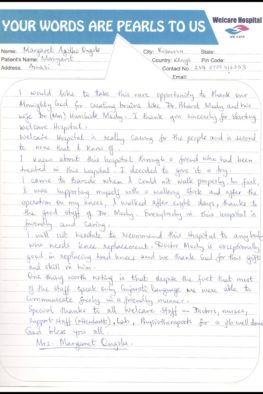 YOUR WORDS ARE PEARLS TO US
Welcare Hospital
WE CARE
Name: Margaret
City: State:
Patient's Name: Margaret
Country: Kenya Pin Code:
Address:
Contact No.:
Email:
I would like to take this rare opportunity to thank our
Almighty God for creating brains like Dr. Bharat Mody and his
wife Dr (Mrs) Mody. I thank you sincerely for starting
Welcare Hospital.
Welcare Hospital is really caring for the people and is second
to none that I know of.
I knew about this hospital through a friend who had been
treated in this hospital. I decided to give it a try.
I came to Baroda when I could not walk properly, in fact,
I was supporting myself with a walking stick and after the
operation on my knees, I walked after eight days, thanks to
the good staff of Dr. Mody. Everybody in this hospital is
friendly and caring.
I will not hesitate to recommend this Hospital to anybody
who needs knee replacement. Doctor Mody is exceptionally
good in replacing bad knees and we thank God for this gift
and skill in him.
One thing worth noting is that despite the fact that most
of the staff speak only Gujarati language we were able to
communicate freely in a friendly manner.
Special thanks to all Welcare Staff - Doctors, nurses,
support staff (attendants), Lab, Physiotherapists for a job well done
God bless you all.
Mrs. Margaret